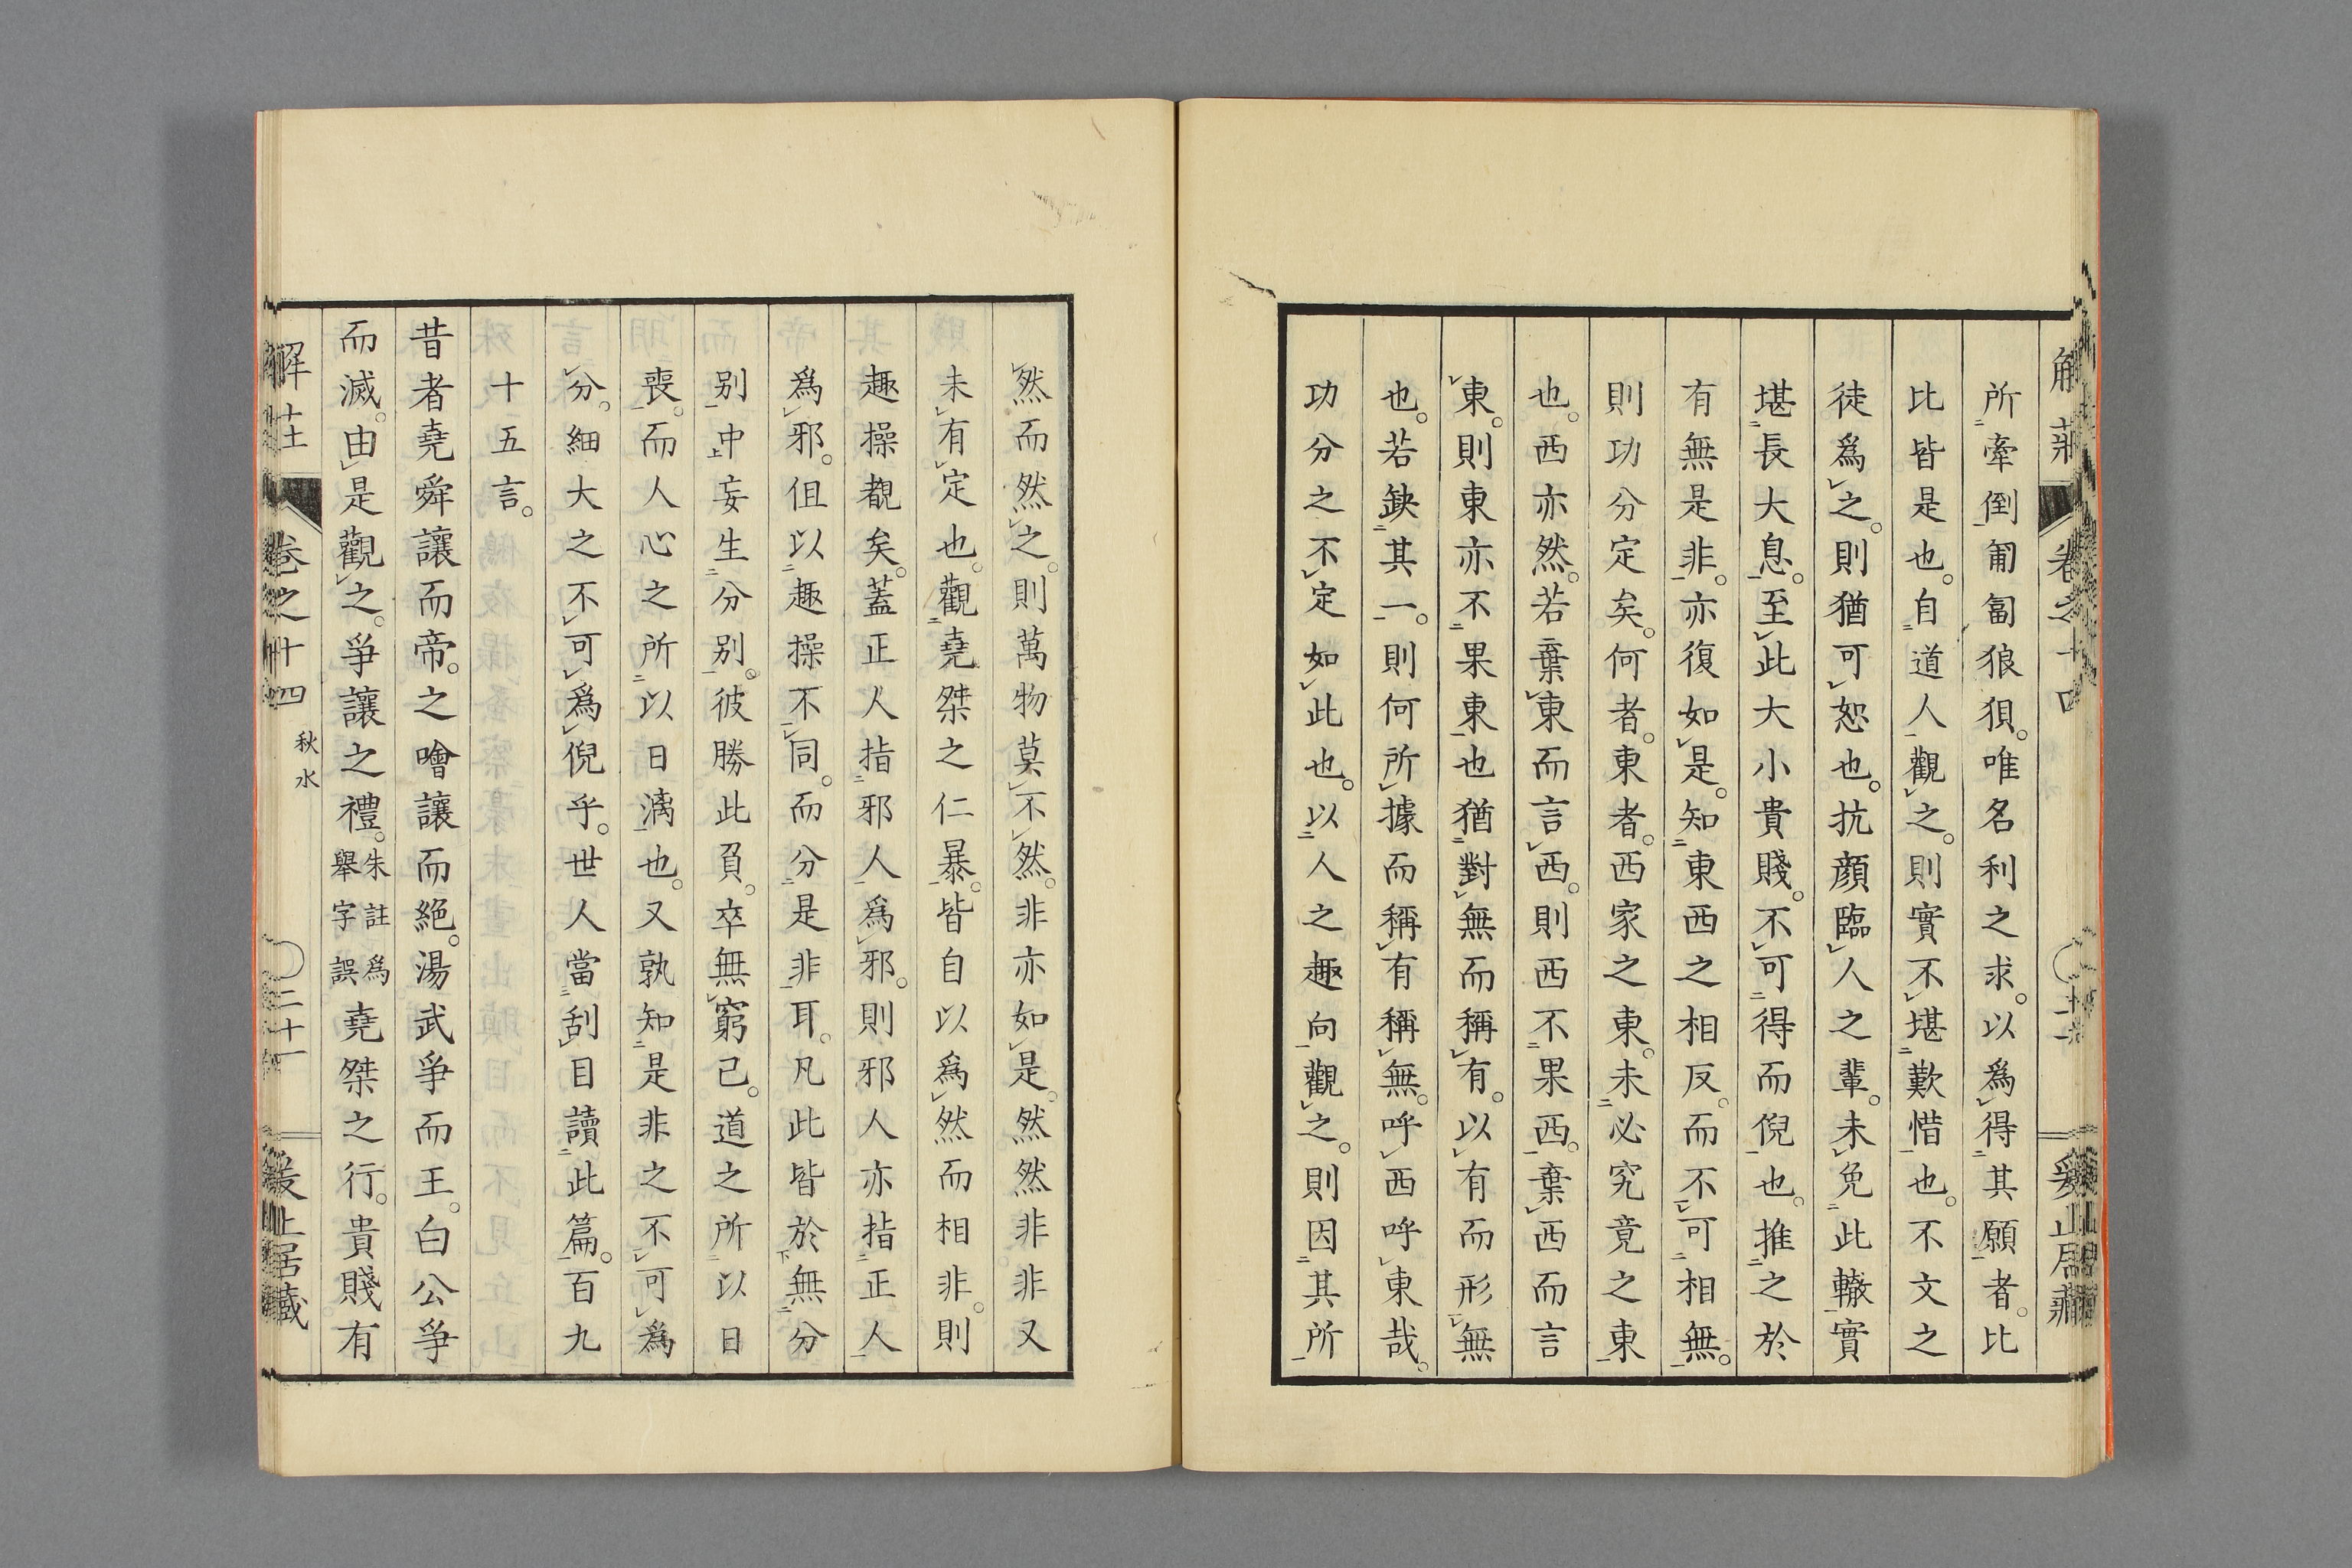 所牽倒匍匐狼狽。唯名利之求。以爲得其願者。比
比皆是也。自道人觀之。則實不堪歎惜也。不文之
徒爲之。則猶可恕也。抗顔臨人之輩。未免此轍實
堪長大息。至此大小貴賤。不可得而倪也。推之於
有無是非。亦復如是。知東西之相反。而不可相無。
則功分定矣。何者。東者。西家之東。未必究竟之東
也。西亦然。若棄東而言西。則西不果西。棄西而言
東。則東亦不果東也猶對無而稱有。以有而形無
也。若缺其一。則何所據而稱有稱無。呼西呼東哉。
功分之不定如此也。以人之趣向觀之。則因其所
然而然之。則萬物莫不然。非亦如是。然然非非又
未有定也。觀堯桀之仁暴。皆自以爲然而相非。則
趣操覩矣。蓋正人指邪人爲邪。則邪人亦指正人
爲邪。但以趣操不同。而分是非耳。凡此皆於無分
别中妄生分别。彼勝此負。卒無窮已。道之所以日
喪。而人心之所以日漓也。又孰知是非之不可爲
分。細大之不可爲倪乎。世人當刮目讀此篇。百九
十五言。
昔者堯舜讓而帝。之噲讓而絕。湯武爭而王。白公爭
而滅。由是觀之。爭讓之禮。朱註爲舉字誤堯桀之行。貴賤有
解莊 卷之十四 秋水 二十一